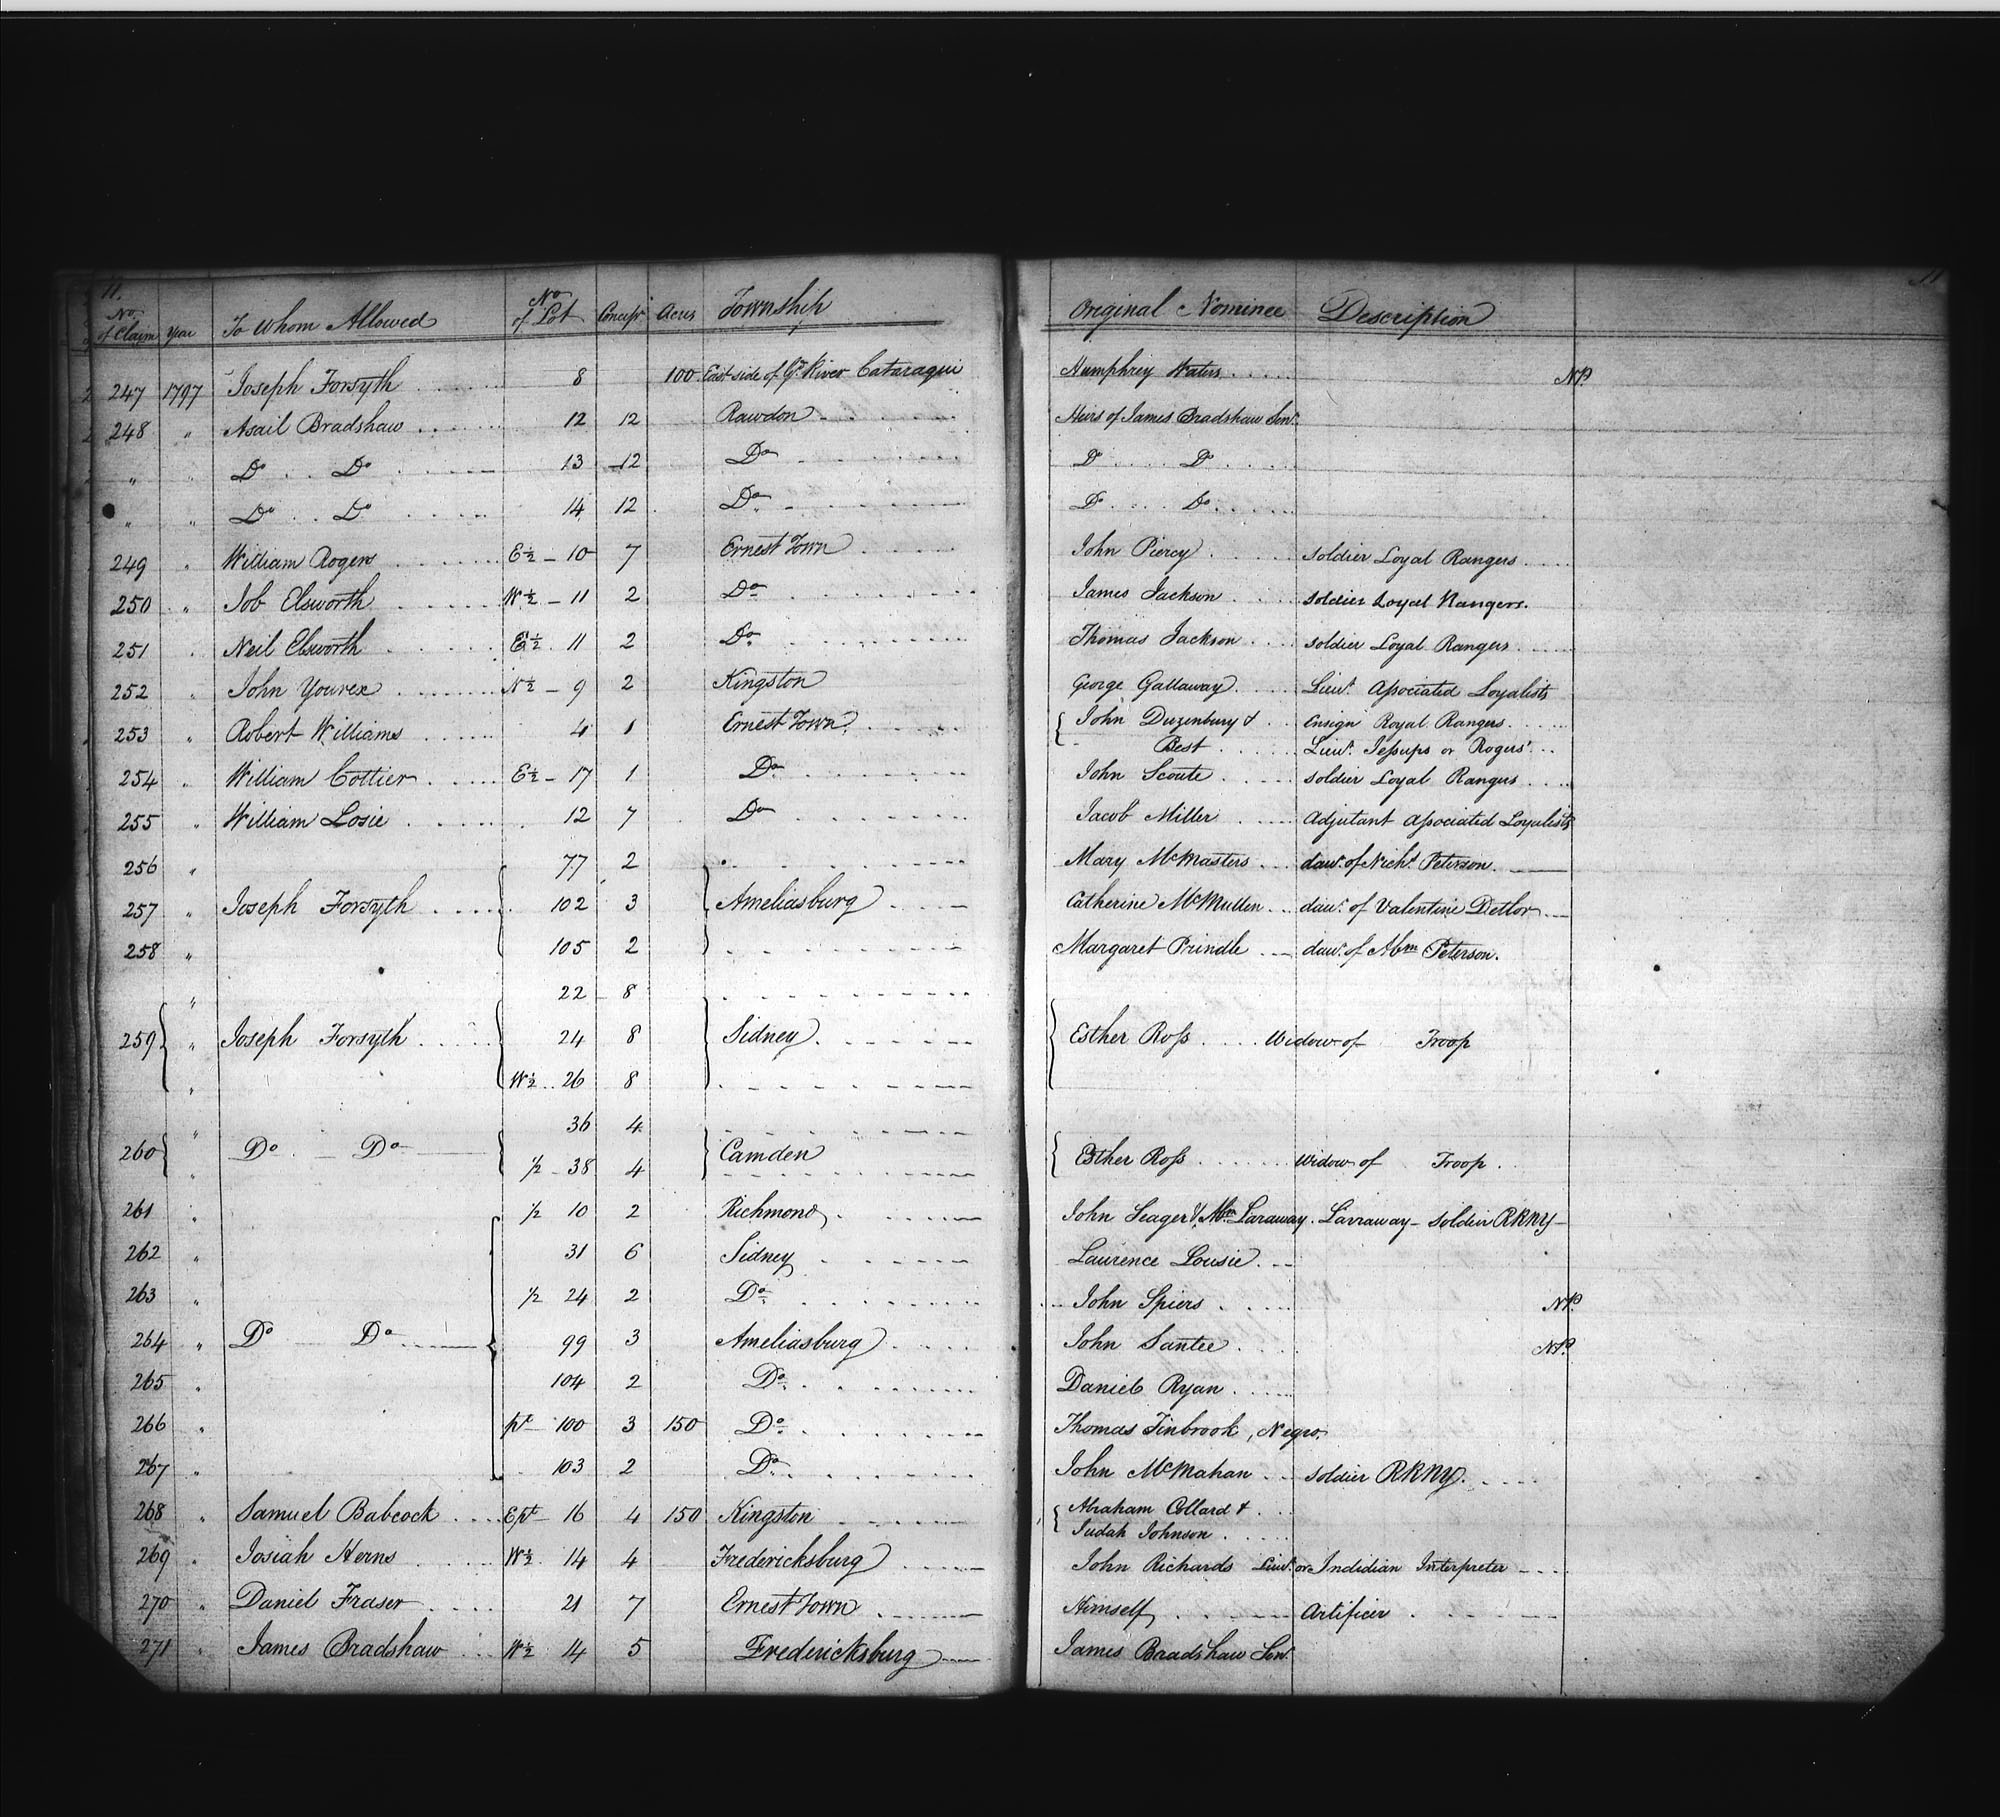 11.
No. of Claim Year To Whom Allowed No of Lot Concessn Acres Township Original Nominee Description
247 1797 Joseph Forsyth 8 100 East side of Gt. River Cataraqui Humphrey Waters NP.
248 " Asail Bradshaw 12 12 Rawdon Heirs of James Bradshaw Senr.
" " Do Do 13 12 Do Do Do
" " Do Do 14 12 Do Do Do
249 " William Rogers E½ 10 7 Ernest Town John Piercy Soldier Loyal Rangers
250 " Job Elsworth W½ 11 2 Do James Jackson Soldier Loyal Rangers.
251 " Neil Elsworth E½ 11 2 Do Thomas Jackson Soldier Loyal Rangers
252 " John Yourex N½ 9 2 Kingston George Gallaway Lieut. Associated Loyalists
253 " Robert Williams 4 1 Ernest Town { John Duzenbury & Ensign Royal Rangers
Best Lieut. Jessups or Rogers'
254 " William Cottier E½ 17 1 Do John Scoute Soldier Loyal Rangers
255 " William Losie 12 7 Do Jacob Miller Adjutant Associated Loyalists
256 " 77 2 Mary McMasters daur. of Nichs. Peterson
257 " Joseph Forsyth 102 3 Ameliasburg Catherine McMullen daur. of Valentine Detlor
258 " 105 2 Margaret Prindle daur. of Abm Peterson.
" 22 8
259 " Joseph Forsyth 24 8 Sidney Esther Ross Widow of Troop
" W½ 26 8
" 36 4
260 Do Do Camden Esther Ross Widow of Troop
" ½ 38 4
261 " ½ 10 2 Richmond John Seager & Wm Laraway. Larraway - Soldier RRNY
262 " 31 6 Sidney Laurence Lousie
263 " ½ 24 2 Do John Spiers NP.
264 " Do Do 99 3 Ameliasburg John Santee NP.
265 " 104 2 Do Daniel Ryan
266 " pt 100 3 150 Do Thomas Tinbrook, Negro.
267 " 103 2 Do John McMahan Soldier RRNY
268 " Samuel Babcock Ept 16 4 150 Kingston { Abraham Collard &
Judah Johnson
269 " Josiah Herns W½ 14 4 Fredericksburg John Richards Lieut. or Indidian Interpreter
270 " Daniel Fraser 21 7 Ernest Town Himself Artificer
271 " James Bradshaw W½ 14 5 Fredericksburg James Bradshaw Senr.